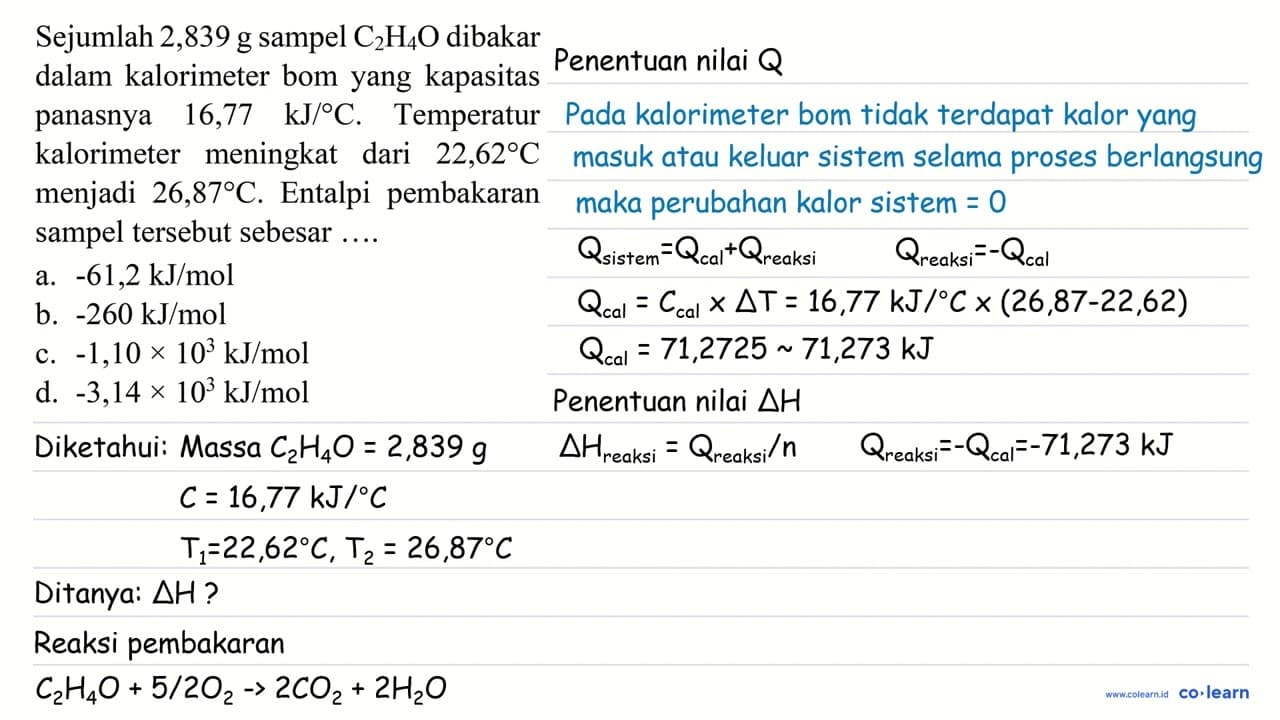 Sejumlah 2,839 g sampel C₂H₄O dibakar
dalam kalorimeter bom yang kapasitas
panasnya 16,77 kJ/°C. Temperatur
kalorimeter meningkat dari 22,62°C
menjadi 26,87°C. Entalpi pembakaran
sampel tersebut sebesar ….
a. -61,2 kJ/mol
b. -260 kJ/mol
c. -1,10 × 10³ kJ/mol
d. -3,14 × 10³ kJ/mol
Diketahui: Massa C₂H₄O = 2,839 g
C = 16,77 kJ/°C
T₁=22,62°C, T₂ = 26,87°C
Ditanya: ΔH ?
Reaksi pembakaran
C₂H₄O + 5/2O₂ -> 2CO₂ + 2H₂O
Penentuan nilai Q
Pada kalorimeter bom tidak terdapat kalor yang
masuk atau keluar sistem selama proses berlangsung
maka perubahan kalor sistem = 0
Q_sistem=Q_cal+Q_reaksi Q_reaksi=-Q_cal
Q_cal = C_cal x ΔT = 16,77 kJ/°C x (26,87-22,62)
Q_cal = 71,2725 ~ 71,273 kJ
Penentuan nilai ΔH
ΔH_reaksi = Q_reaksi/n Q_reaksi=-Q_cal=-71,273 kJ
www.colearn.id co·learn